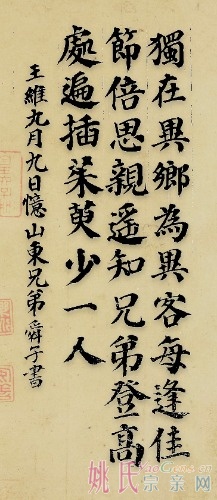 獨在異鄉為異客每逢佳
節倍思親遥知兄弟登高
處遍插茱萸少一人
王維九月九日憶山東兄弟舜子書
姚氏宗亲网